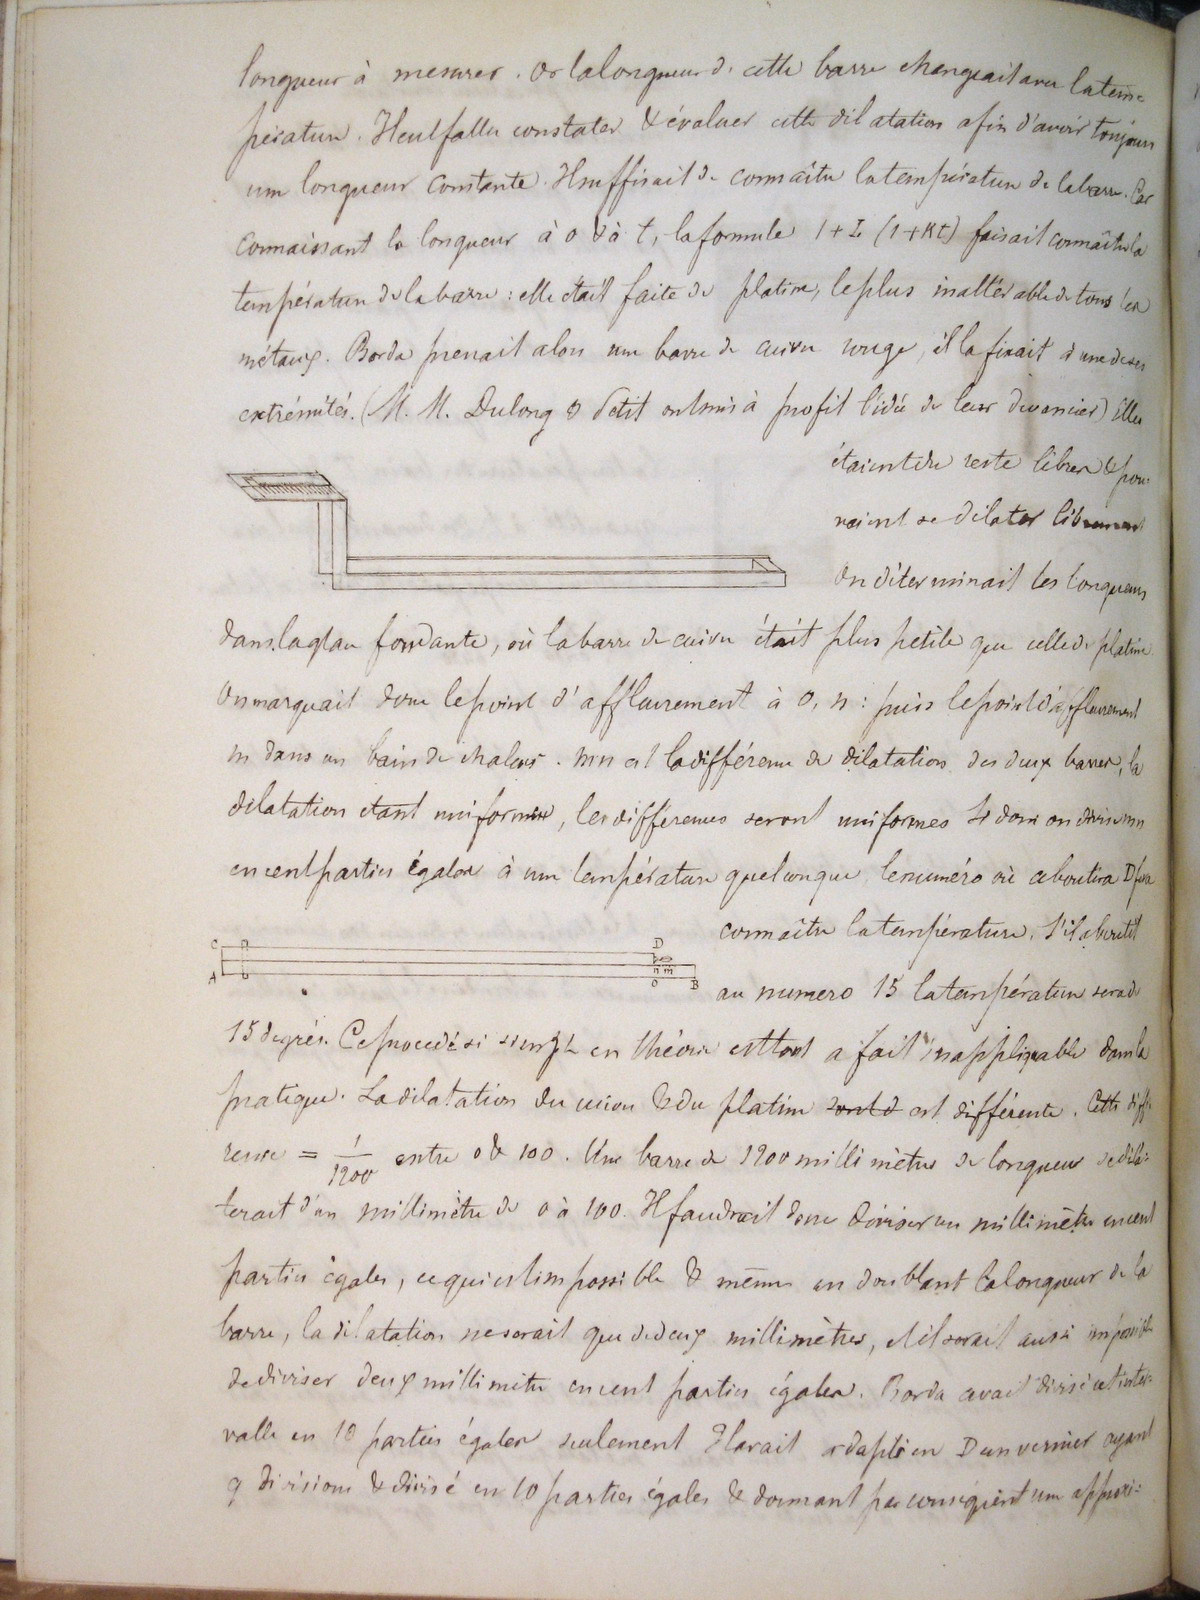 longueur à mesurer. Or la longueur de cette barre changeait avec la tem=
pérature. Il eut fallu constater & évaluer cette dilatation afin d'avoir toujours
une longueur constante. Il suffisait de connaître la température de la barre. Car
connaissant la longueur à 0 & à t, la formule 1 + L (1+Kt) faisait connaître la
température de la barre : elle était faite de platine, le plus inaltérable de tous les
métaux. Borda prenait alors une barre de cuivre rouge, il la fixait à une de ses
extrémités. (M. M. Dulong & Petit ont mis à profit l'idée de leur devancier) elles
étaient du reste libres & pou-
vaient se dilater librement
On déterminait les longueurs
dans la glace fondante, où la barre de cuivre était plus petite que celle de platine.
On marquait donc le point d'affleurement à 0, n : puis le point d'affleurement
m dans un bain de chaleur. mn est la différence de dilatation des deux barres, la
dilatation étant uniforme, les différences seront uniformes Si donc on divise mn
en cent parties égales à une température quelconque le numéro où aboutira D fera
C D
n m
A O B
connaître la température. S'il aboutit
au numero 15 la température sera de
15 degrés. Ce procédé si simple en théorie est tout a fait inappliquable dans la
pratique. La dilatation du cuivre & du platine sont d est différente. Cette diffé
rence = 1/1200 entre 0 & 100. Une barre de 1200 millimètres de longueur se dila-
terait d'un millimètre de 0 à 100. Il faudrait donc diviser un millimètre en cent
parties égales, ce qui est impossible & même en doublant la longueur de la
barre, la dilatation ne serait que de deux millimètres, et il serait aussi impossible
de diviser deux millimètre en cent parties égales. Borda avait divisé cet inter-
valle en 10 parties égales seulement Il avait adapté en D un vernier ayant
9 divisions & divisé en 10 parties égales & donnant par conséquent une approxi=